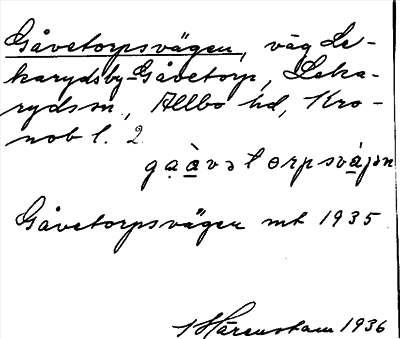 Gåvetorpsvägen, väg Le-
karydsby-Gåvetorp, Leka-
rydssn, Allbo hd, Kro-
nob l. 2
gạàvətorpsvàjən
Gåvetorpsvägen mt 1935
Härenstam 1936